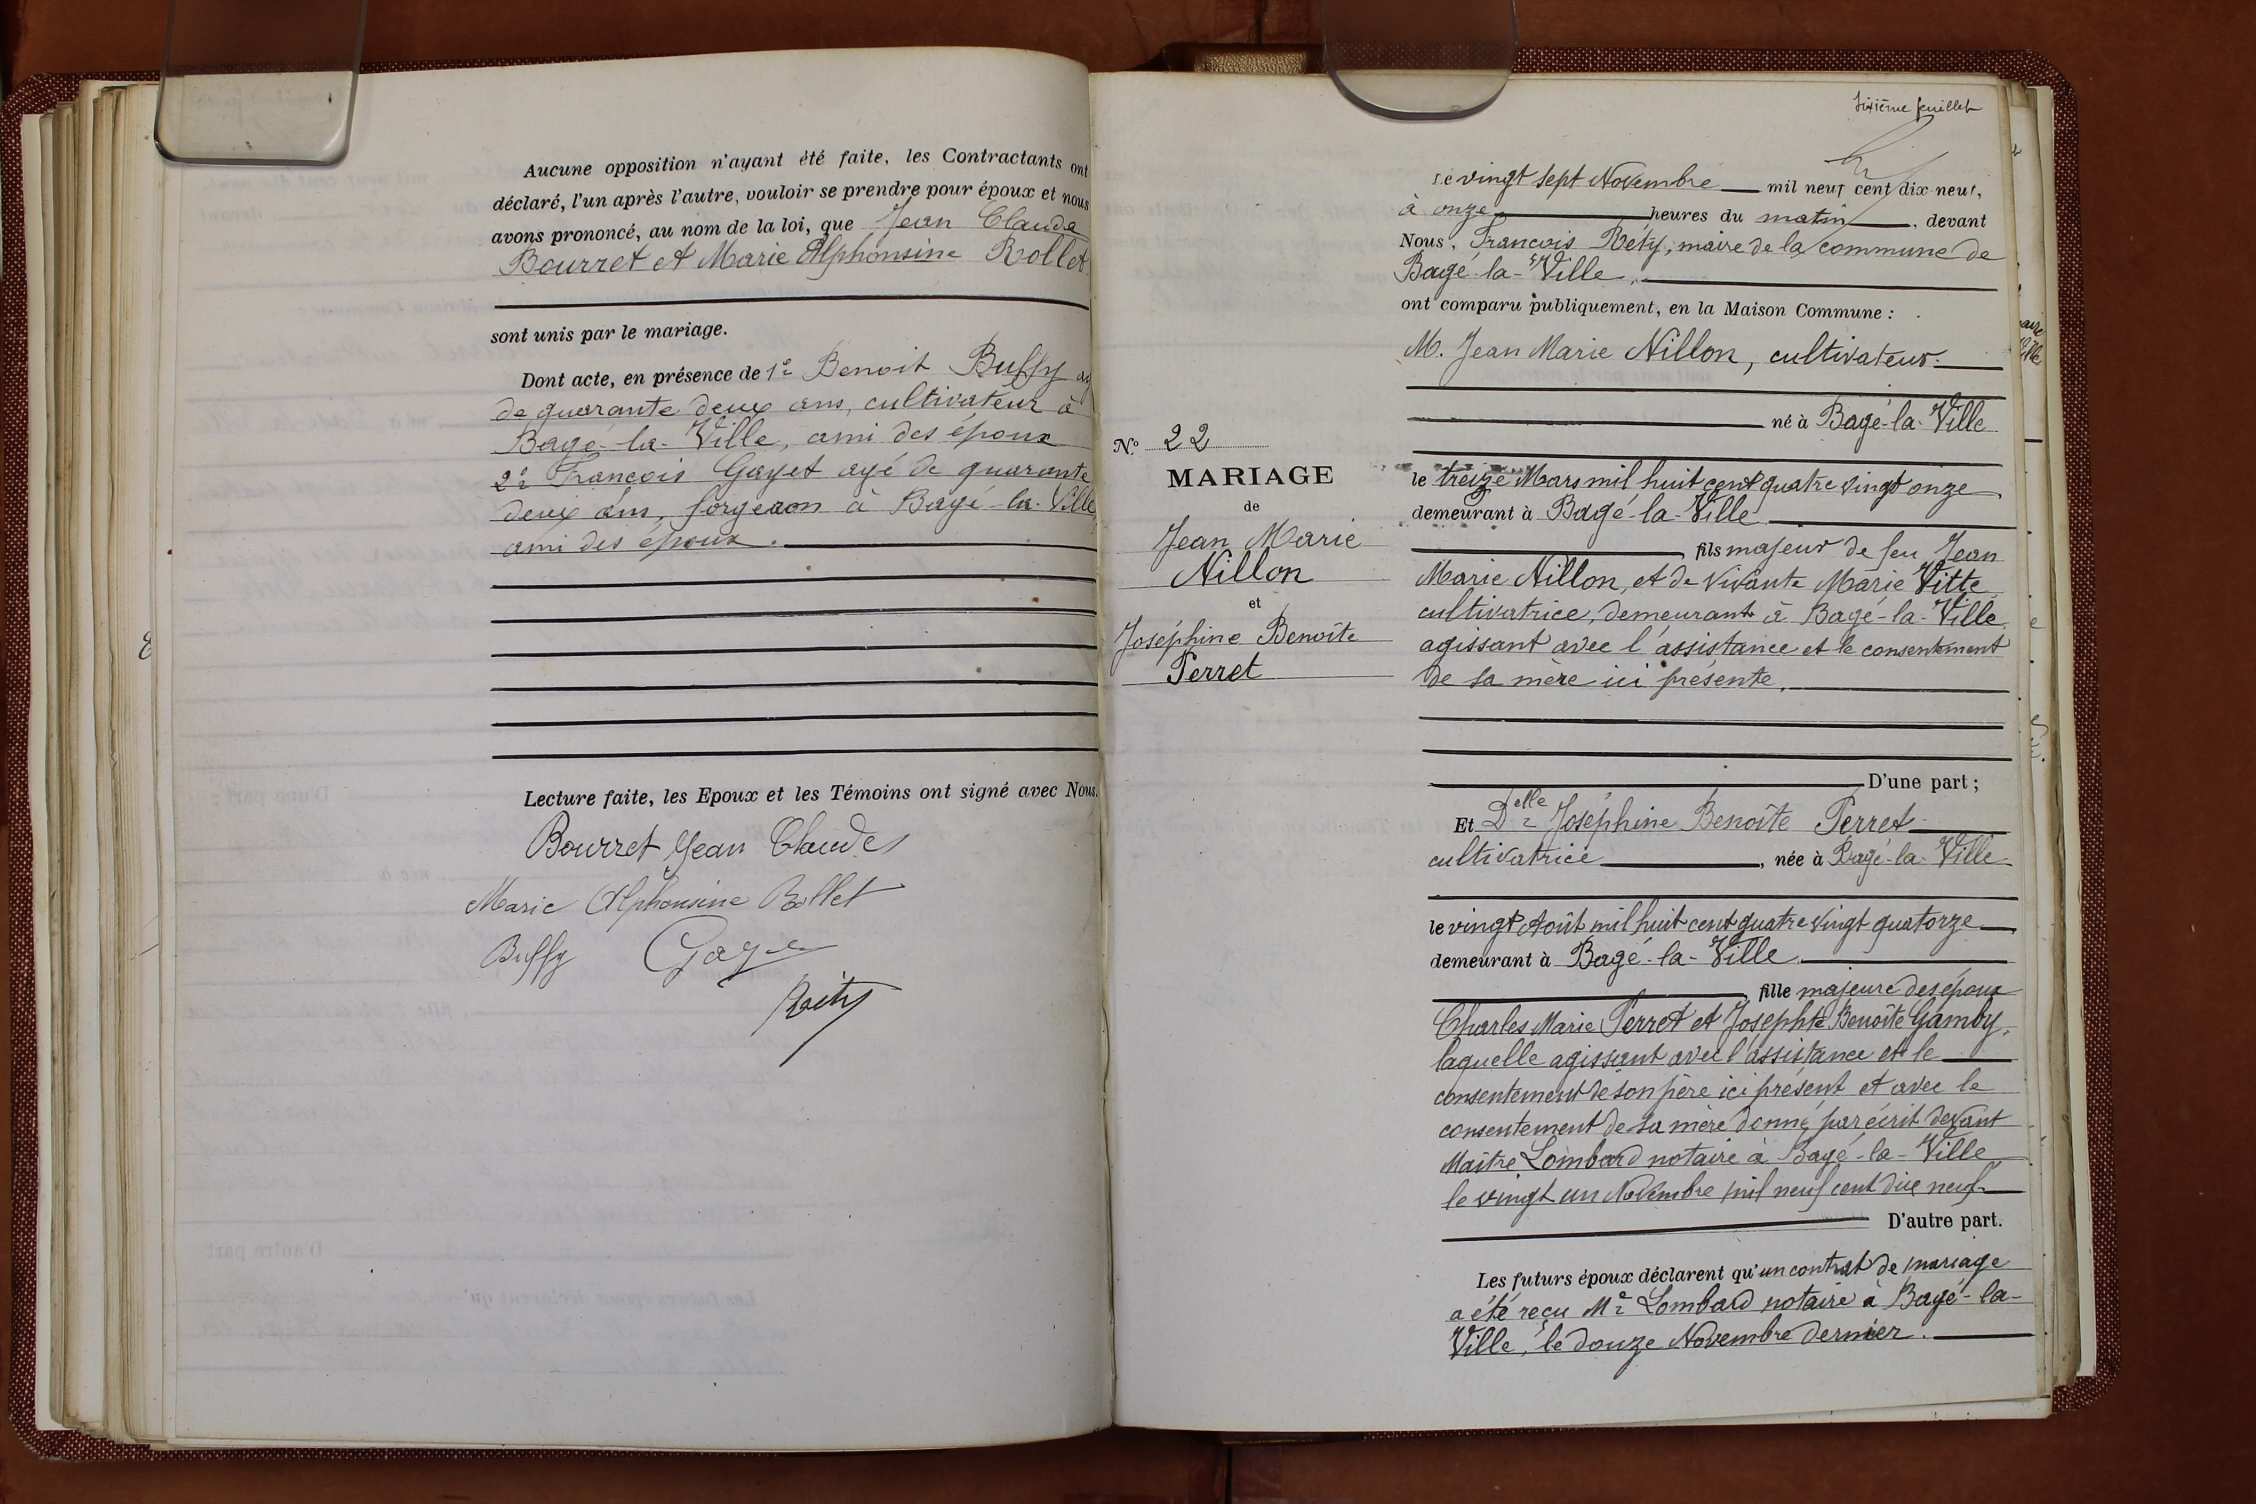 Aucune opposition n'ayant été faite, les Contractants ont
déclaré, l'un après l'autre, vouloir se prendre pour époux et nous
avons prononcé, au nom de la loi, que Jean Claude
Bourret et Marie Alphonsine Rollet
sont unis par le mariage.
Dont acte, en présence de 1º Benoit Buffy
de quarante deux ans, cultivateur à
Bagé-la-Ville, ami des époux
2º François Gayet agé de quarante
deux ans, forgeron à Bagé-la-Ville,
ami des époux.
Lecture faite, les Epoux et les Témoins ont signé avec Nous.
Bourret Jean Claude
Marie Alphonsine Rollet
Buffy
Réty
sixième feuillet
Le vingt sept Novembre mil neuf cent dix-neuf,
à onze heures du matin, devant
Nous, François Réty, maire de la commune de
Bagé-la-Ville,
ont comparu publiquement, en la Maison Commune :
M. Jean Marie Nillon, cultivateur
né à Bagé-la-Ville
Nº 22
MARIAGE
de
Jean Marie
Nillon
et
Joséphine Benoîte
Perret
le treize Mars mil huit cent quatre vingt onze
demeurant à Bagé-la-Ville
fils majeur de feu Jean
Marie Nillon, et de vivante Marie Vitte
cultivatrice, demeurant à Bagé-la-Ville,
agissant avec l'assistance et le consentement
de sa mère ici présente,
D'une part ;
Et Delle Joséphine Benoîte Perret
cultivatrice, née à Bagé-la-Ville
le vingt Août mil huit cent quatre vingt quatorze
demeurant à Bagé-la-Ville
fille majeure des époux
Charles Marie Perret et Josephte Benoîte Gamby,
laquelle agissant avec l'assistance et le
consentement de son père ici présent et avec le
consentement de sa mère donné par écrit devant
Maître Lombard notaire à Bagé-la-Ville
le vingt un Novembre mil neuf cent dix neuf
D'autre part.
Les futurs époux déclarent qu'un contrat de mariage
a été reçu Me Lombard notaire à Bagé-la-
Ville, le douze Novembre dernier.